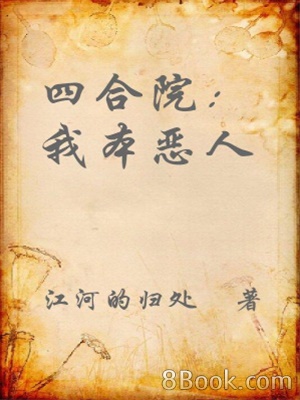 四合院：
我本恶人
江河的归处 著
8Book.com